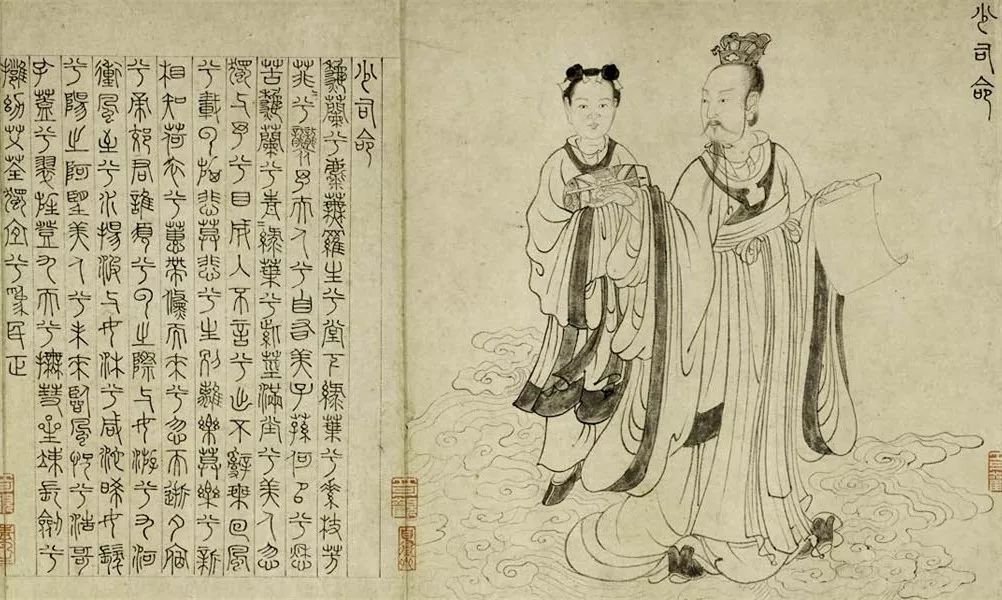 少司命
少司命
龝蘭兮麋蕪羅生兮堂下綠葉兮素枝芳
菲兮襲予夫人兮自有美子蓀何以兮愁
苦龝蘭兮青綠葉兮紫莖滿堂兮美人忽
獨與予兮目成入不言兮出不辭乘回風
兮載云旗悲莫悲兮生別離樂莫樂兮新
相知荷衣兮蕙帶儵而來兮忽而逝夕宿
兮帝郊君誰須兮云之際與女游兮九河
衝風至兮水揚波與女沐兮咸池晞女髮
兮陽之阿望美人兮未來臨風怳兮浩哥
孔蓋兮翠旌登九天兮撫彗星竦長劍兮
擁幼艾荃獨宜兮爲民正